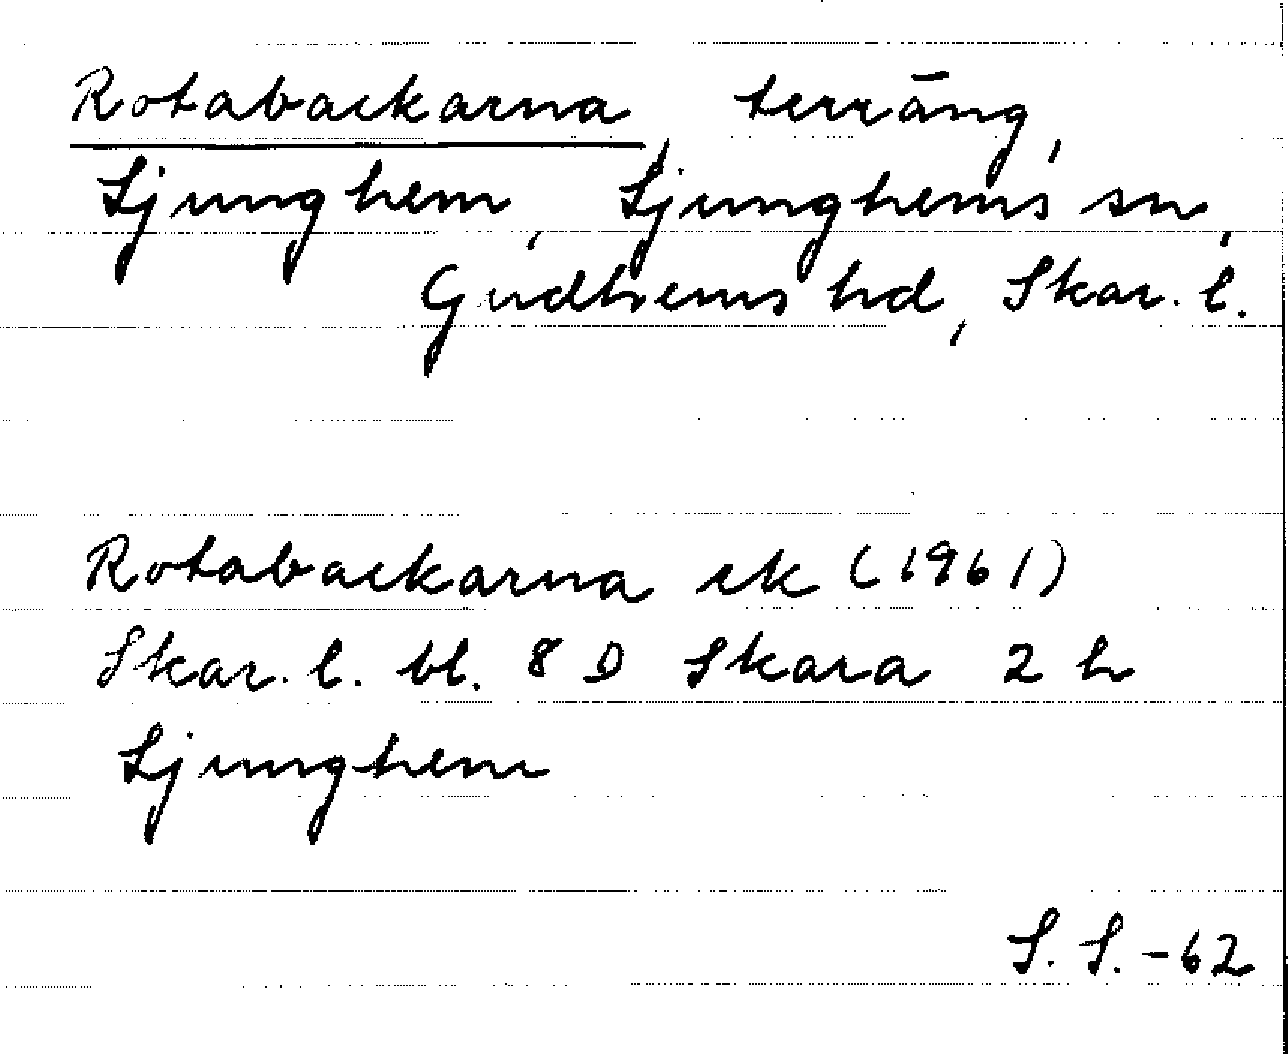 Rotabackarna, terräng,
Ljunghem, Ljunghems sn,
Gudhems hd, Skar. l.
Rotabackarna ek (1961)
Skar. l. bl. 8 D Skara 2 h
Ljunghem
S. S. -62